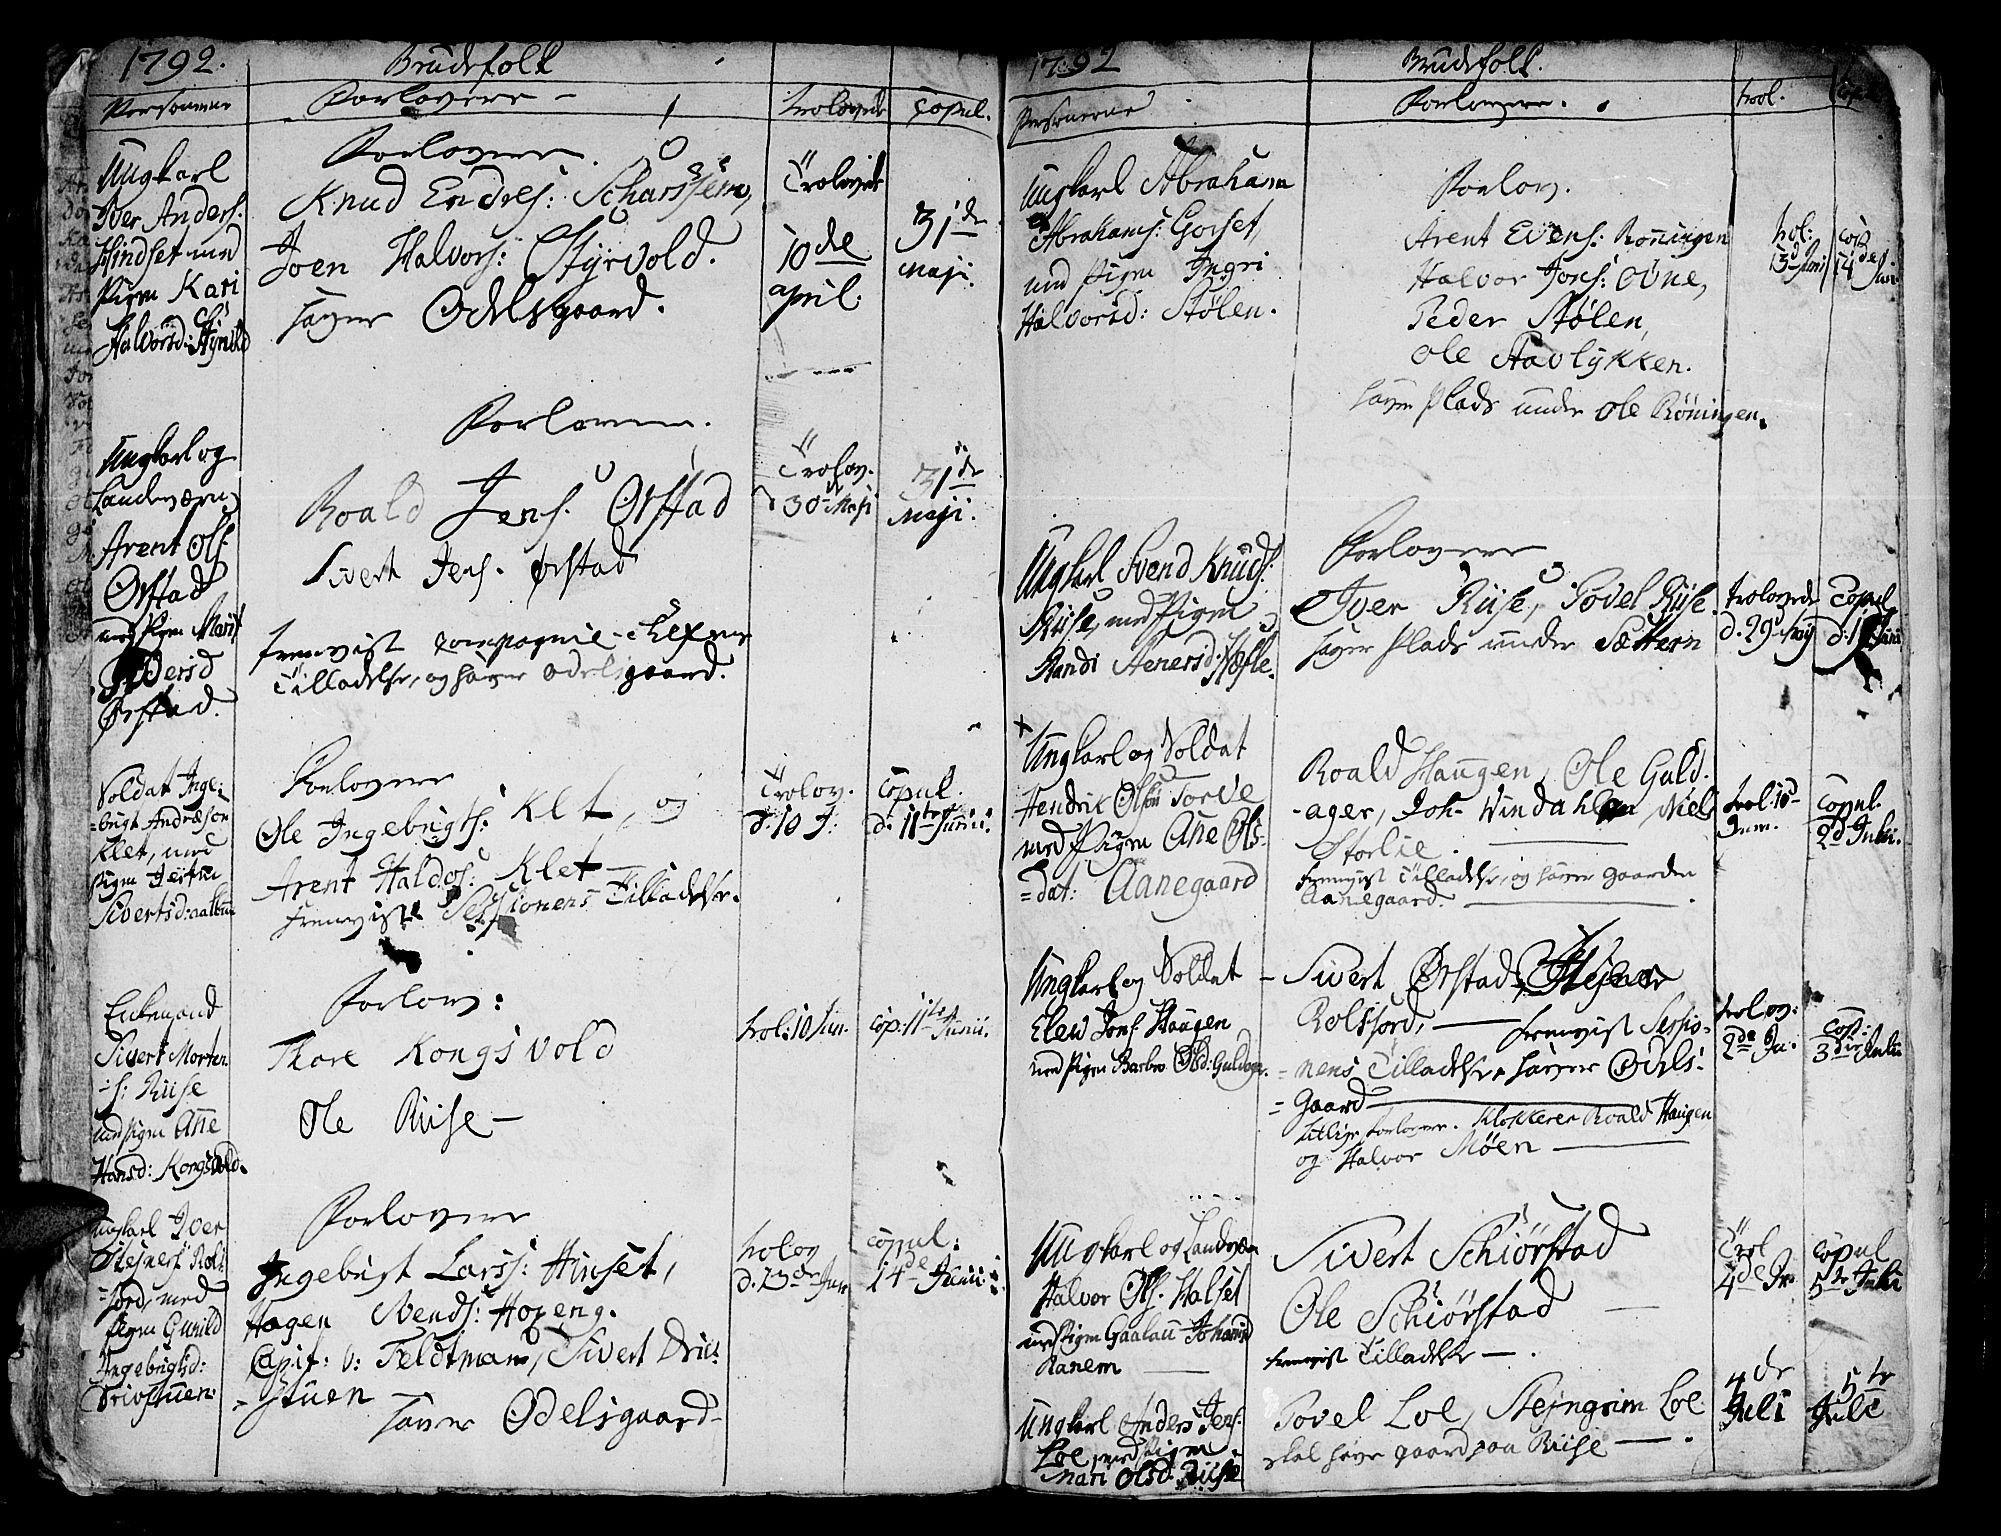 1792. Brudefolk
Personerne Forlovere - trolovede Copul.
Ungkarl
Iver Anders:
Hindset med
Pigen Kari
Halvorsd: Styrvold
Forlovere.
Knud Endres: Scharssem,
Joen Halvors: Styrvold.
haver Odelsgaard.
Trolovede
10de
april.
31de
Maji.
Ungkarl og
Landeværn
Arent Ols:
Ørstad
med Pigen Marit
Ørstad.
Forlovere.
Roald Jens. Ørstad
Sivert Jens. Ørstad
fremvist Compagnie-Chefens
Tilladelse, og haver Odelsgaard.
Trolov.
d 30 Maji
31de
Maji.
Soldat Inge-
=brigt Andræson
Klet, med
Pigen
Sivertsd:
Forlovere
Ole Ingebrigts: Klet, og
Arent Haldos: Klet -
fremviste Sessionens Tilladelse.
Trolov.
d. 10 J:
Copul.
d. 11te Junii.
Enkemand
Sivert Morten
=s: Riise
med Pigen Ane
Hansd: Kongsvold.
Forlov:
Thore Kongsvold
Ole Riise -
trol: 10 Jun.
Cop: 11te Junii.
Ungkarl Iver
Stejners: Rols
=jord, med
Pigen Gunild
Ingebrigtsd:
Drivstuen.
Forlovere
Ingebrigt Larss: Hinset,
Hagen Svends: Hoxeng.
Capit: v: Feldtmann, Sivert Driv
=stuen
haver Odelsgaard-
trolov
d. 13de Jun
Copul:
14de Junii.
1792 Brudefolk.
Personerne Forlovere. trol. Cop
Ungkarl Abraham
Abrahams: Gorset,
med Pigen Ingri
Halvorsd: Stølen.
Forlov.
Arent Evens: Rønningen
Halvor Jons: Ovne,
Peder Stølen,
Ole Stavlykken.
haver Plads under Ole Røningen.
trol:
13d Juni
Cop
14de Jun
Ungkarl Svend Knuds:
Riise, med Pigen
Randi Stenersd:
Forlovere
Iver Riise, Povel Riise
haver Plads under Sættern
trolovede
d. 29 Maij
Copul.
Ungkarl og Soldat
Hendrik Olsøn Torve
med Pigen Ane Ols-
=dat: Aanegaard
Roald Haugen, Ole Guld-
-ager, Joh- Vindahlen Niels
Storlie.
fremvist Tilladelse, og haver Gaarden
Aanegaard.
trol: 10
Jun.
Copul.
2d Juli.
Ungkarl og Soldat
Elew Jons: Haugen
med Pigen Barbro Olsd: Guldager.
- Sivert Ørstad, Stejner
Rolsjord, - fremvist Sessio-
=nens Tilladelse haver Odels-
=Gaard -
Klokkeren Roald Haugen
og Halvor Møen
trolov:
2de Ju.
Cop:
3die Julii
Ungkarl og Landværn
Halvor Ols: Halset
med Pigen Gaalau Johansd
Ranem
Sivert Schiørstad
Ole Schiørstad
fremvist Tilladelse -.
Trol
4de Ju
Copul
5te Juli
Ungkarl Anders Jens:
Loe, med Pigen
Mari Olsd: Riise
Povel Loe, Stejngrim Loe
skal have gaard paa Riise -.
4de
Juli
5te
Juli